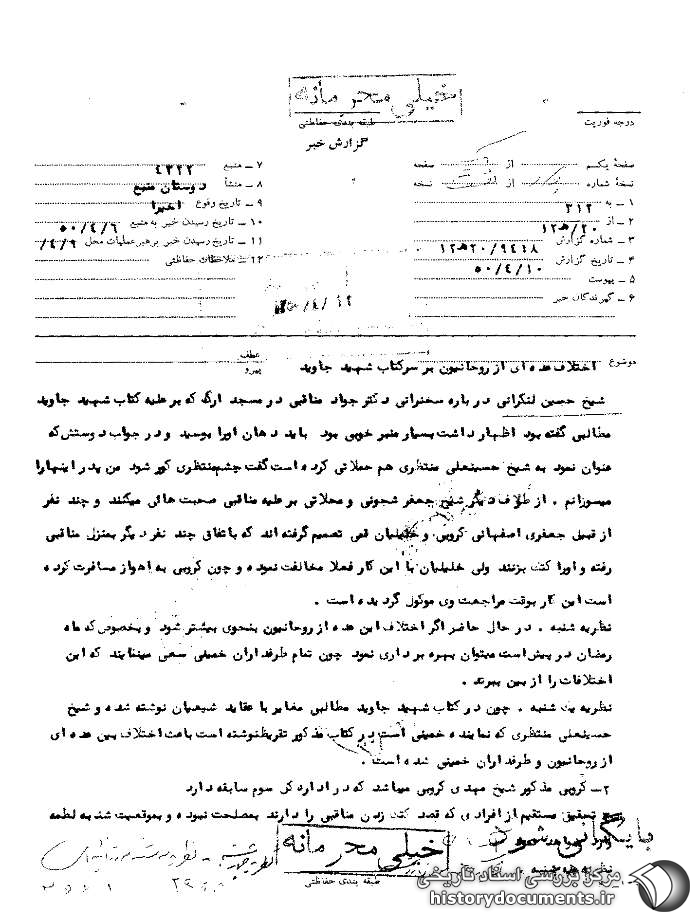 خیلی محرمانه
طبقه بندی حفاظتی
درجه فوریت
گزارش خبر
صفحهٔ یکم از صفحه
نسخهٔ شماره از نسخه
۱ ـ به ۳۱۲
۲ ـ از ۲۰/هـ۱۲
۳ ـ شماره گزارش ۹۴۱۸/۲۰هـ۱۲
۴ ـ تاریخ گزارش ۵۰/۴/۱۰
۵ ـ پیوست
۶ ـ گیرندگان خبر
۷ ـ منبع ۴۳۲۲
۸ ـ منشأ دوستان منبع
۹ ـ تاریخ وقوع اخیرا
۱۰ ـ تاریخ رسیدن خبر به منبع ۵۰/۴/۶
۱۱ ـ تاریخ رسیدن خبر برهبر عملیات محل ۴/۹/
۱۲ ـ ملاحظات حفاظتی
۴/۱۲
موضوع اختلاف عده ای از روحانیون بر سر کتاب شهید جاوید
عطف
پیرو
شیخ حسین لنکرانی درباره سخنرانی دکتر جواد مناقبی در مسجد ارک که بر علیه کتاب شهید جاوید
مطالبی گفته بود اظهار داشت بسیار منبر خوبی بود باید دهان اورا بوسید و در جواب دوستش که
عنوان نمود به شیخ حسینعلی منتظری هم حملاتی کرده است گفت چشم منتظری کور شود من پدر اینهارا
میسوزانم . از طرف دیگر شیخ جعفر شجونی و محلاتی بر علیه مناقبی صحبت هائی میکنند و چند نفر
از قبیل جعفری اصفهانی کروبی و خلیلیان قمی تصمیم گرفته اند که باتفاق چند نفر دیگر بمنزل مناقبی
رفته و اورا کتک بزنند ولی خلیلیان با این کار فعلا مخالفت نموده و چون کروبی به اهواز مسافرت کرده
است این کار بوقت مراجعت وی موکول گردیده است .
نظریه شنبه . در حال حاضر اگر اختلاف این عده از روحانیون بنحوی بیشتر شود و بخصوص که ماه
رمضان در پیش است میتوان بهره برداری نمود چون تمام طرفداران خمینی سعی مینمایند که این
اختلافات را از بین ببرند .
نظریه یک شنبه . چون در کتاب شهید جاوید مطالبی مغایر با عقاید شیعیان نوشته شده و شیخ
حسینعلی منتظری که نماینده خمینی است بر کتاب مذکور تقریظ نوشته است باعث اختلاف بین عده ای
از روحانیون و طرفداران خمینی شده است .
۲ـ کروبی مذکور شیخ مهدی کروبی میباشد که در اداره کل سوم سابقه دارد
تحقیق مستقیم از افرادی که قصد کتک زدن مناقبی را دارند بمصلحت نبوده و بموقعیت شنبه لطمه
بایگانی شود
خیلی محرمانه
طبقه بندی حفاظتی
مرکز بررسی اسناد تاریخی
historydocuments.ir